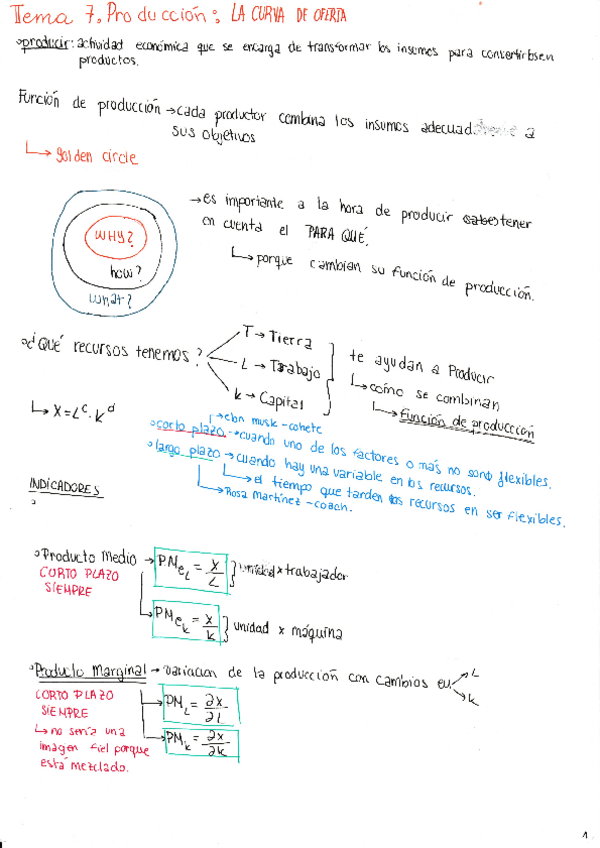 Tema 7. Producción: LA CURVA DE OFERTA
producir: actividad económica que se encarga de transformar los insumos para convertirlos en
productos.
Función de producción → cada productor combina los insumos adecuad a
sus objetivos
↳ golden circle
WHY?
how?
what?
→ es importante a la hora de producir tener
en cuenta el PARA QUÉ.
↳ porque cambian su función de producción.
¿Qué recursos tenemos?
T → Tierra
L → Trabajo
K → Capital
te ayudan a Producir
↳ cómo se combinan
↳ función de producción
↳ X = L^c · K^d
→ elon musk - cohete
corto plazo → cuando uno de los factores o más no sono flexibles.
largo plazo → cuando hay una variable en los recursos.
↳ el tiempo que tarden los recursos en ser flexibles.
↳ Rosa Martínez - coach.
INDICADORES
Producto Medio → PMe_L = X/L } unidad x trabajador
CORTO PLAZO
SIEMPRE
↳ PMe_K = X/K } unidad x máquina
Producto Marginal → variacion de la producción con cambios en L
K
CORTO PLAZO
SIEMPRE
↳ no sería una
imagen fiel porque
está mezclado.
PM_L = ∂X/∂L
PM_K = ∂X/∂K
1